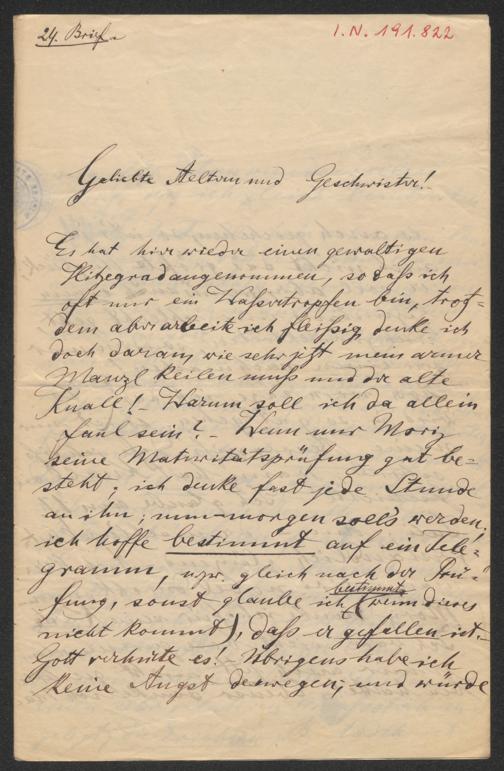 24. Brief.
I.N. 191.822
Geliebte Aeltern und Geschwister!
Es hat hier wieder einen gewaltigen
Hitzegrad angenommen, so daß ich
oft nur ein Wassertropfen bin, trotz=
dem aber arbeite ich fleißig, denke ich
doch daran, wie sehr jetzt mein armer
Manzl keilen muß und der alte
Knall! – Warum soll ich da allein
faul sein? – Wenn nur Moriz
seine Maturitätsprüfung gut be=
steht; ich denke fast jede Stunde
an ihn; nun – morgen soll's werden,
ich hoffe bestimmt auf ein Tele=
gramm, uzw. gleich nach der Prü=
fung, sonst glaube ich bestimmt (wenn dieses
nicht kommt), daß er gefallen ist. –
Gott verhüte es! – Übrigens habe ich
keine Angst deswegen, und würde